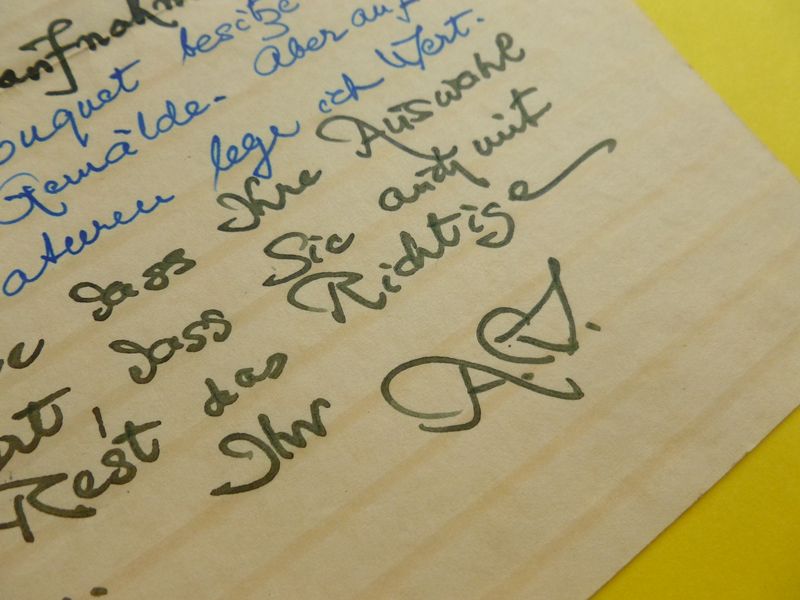 aufnahm
ouquet besitze
Gemälde. Aber auf
aturen lege ich Wert.
dass Ihre Auswahl
ert, dass Sie auch mit
Rest das Richtige
Ihr A.S.